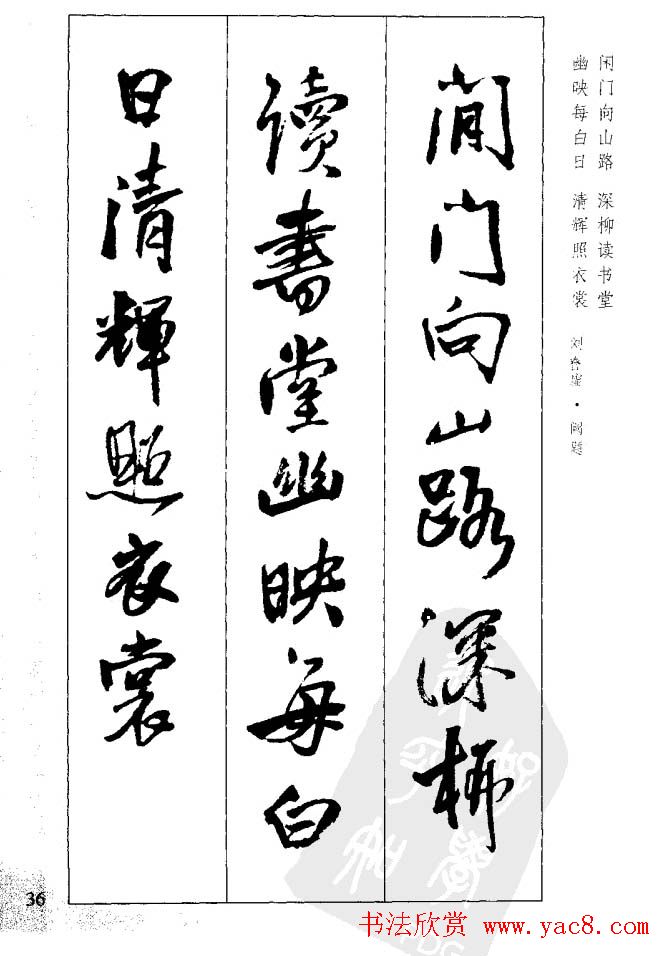 闲门向山路 深柳读书堂
幽映每白日 清辉照衣裳
刘眘虚·阙题
閒门向山路深柳
讀書堂幽映每白
日清輝照衣裳
36
书法欣赏 www.yac8.com